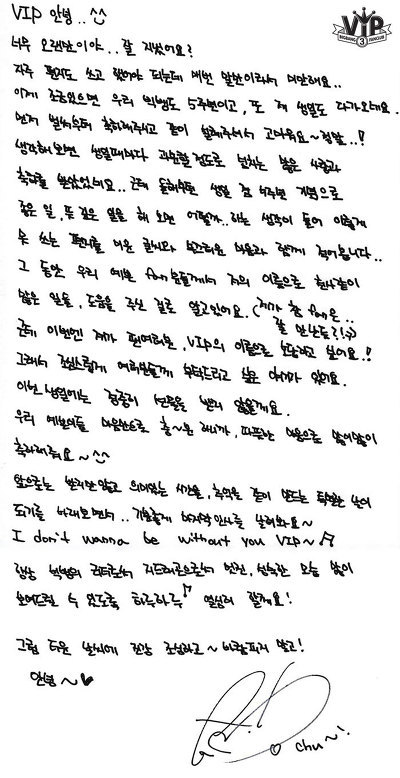 VIP
BIGBANG FANCLUB
3
VIP 안녕.. ^^
너무 오랜만이야.. 잘 지냈어요?
자주 편지도 쓰고 했어야 되는데 매번 말만이라서 미안해요..
이제 조금있으면 우리 빅뱅도 5주년이고, 또 제 생일도 다가오네요..
먼저 벌써부터 축하해주시고 같이 설레주셔서 고마워요~ 정말..!
생각해보면 생일때마다 과분할정도로 넘치는 많은 사랑과
축하를 받았었네요.. 근데 올해부터는 생일 겸 5주년 기념으로
좋은 일, 뜻 깊은 일을 해 보면 어떨까.. 하는 생각이 들어 이렇게
못 쓰는 편지를 어운 글씨와 부끄러운 마음과 함께 적어봅니다..
그 동안 우리 예쁜 fan분들께서 저의 이름으로 천사같이
많은 일들, 도움을 주신 걸로 알고있어요. (제가 참 fan은..
잘 만난듯?!:))
근데 이번엔 제가 내여러분, VIP의 이름으로 보답하고 싶어요.!!
그래서 조심스럽게 여러분들께 부탁드리고 싶은 얘기가 있어요.
이번 생일에는 정중히 선물을 받지 않을게요.
우리 예쁜이들 마음만으로 충~분 하니까, 따뜻한 마음으로 많이많이
축하해줘요~ ^^
앞으로는 받지만말고 의미있는 시간을, 추억을 같이 만드는 특별한 날이
되기를 바래보면서.. 기분좋게 마지막인사를 날려봐요~
I don't wanna be without you VIP~♬
항상 빅뱅의 리더로서 지드래곤으로서 멋진, 성숙한 모습 많이
보여드릴 수 있도록 하루하루♪ 열심히 할께요!
그럼 더운 날씨에 건강 조심하고~ 바람피지 말고!
안녕~♥
chu~!